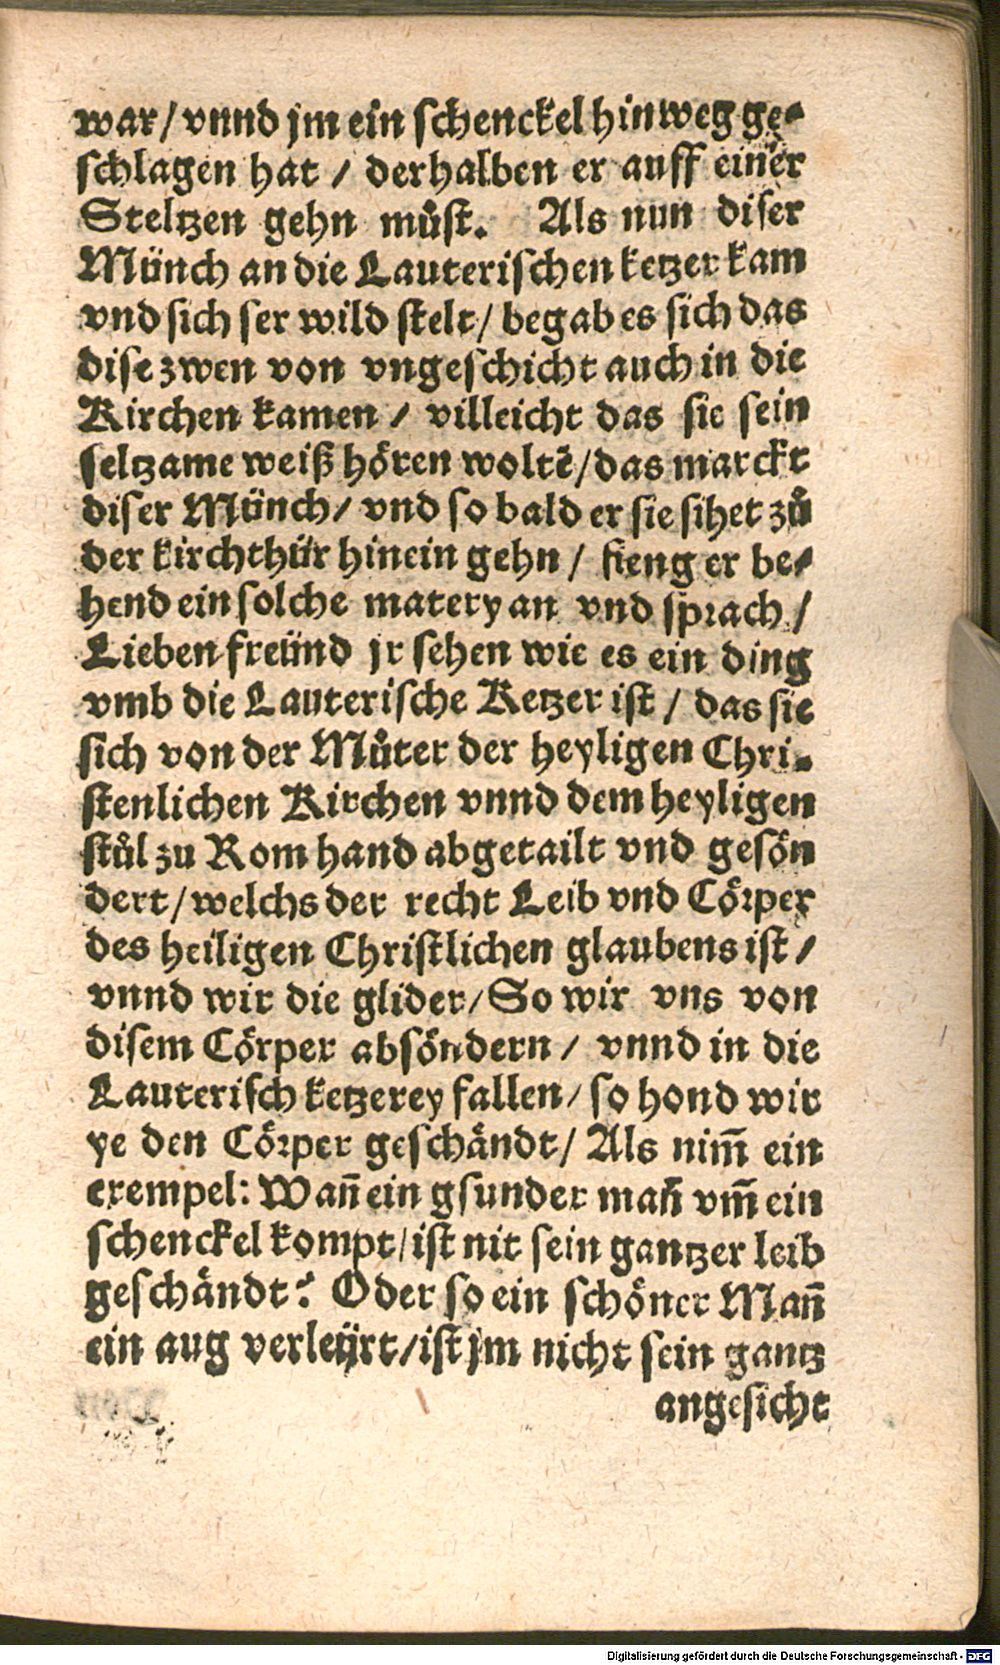 war/ vnnd jm ein schenckel hinweg ge⸗
schlagen hat / derhalben er auff einer
Steltzen gehn můst. Als nun diser
Münch an die Lauterischen ketzer kam
vnd sich ser wild stelt/ begab es sich das
dise zwen von vngeschicht auch in die
Kirchen kamen / villeicht das sie sein
seltzame weiß hören woltē/ das marckt
diser Münch/ vnd so bald er sie sihet zů
der kirchthür hinein gehn / fieng er be⸗
hend ein solche matery an vnd sprach /
Lieben freünd jr sehen wie es ein ding
vmb die Lauterische Ketzer ist / das sie
sich von der Můter der heyligen Chri⸗
stenlichen Kirchen vnnd dem heyligen
stůl zu Rom hand abgetailt vnd gesön
dert/ welchs der recht Leib vnd Cörper
des heiligen Christlichen glaubens ist /
vnnd wir die glider/ So wir vns von
disem Cörper absöndern / vnnd in die
Lauterisch ketzerey fallen/ so hond wir
ye den Cörper geschändt/ Als nim̄ ein
exempel: Wañ ein gsunder mañ vm̄ ein
schenckel kompt/ ist nit sein gantzer leib
geschändt? Oder so ein schöner Mañ
ein aug verleürt/ ist jm nicht sein gantz
angesicht
Digitalisierung gefördert durch die Deutsche Forschungsgemeinschaft - DFG